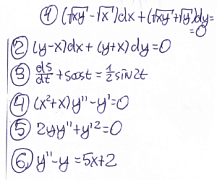 1) (√xy - √x)dx + (√xy + √y)dy = 0
2) (y-x)dx + (y+x)dy = 0
3) ds/dt + s cos t = 1/2 sin 2t
4) (x²+x)y'' - y' = 0
5) 2yy'' + y'² = 0
6. y'' - y = 5x + 2